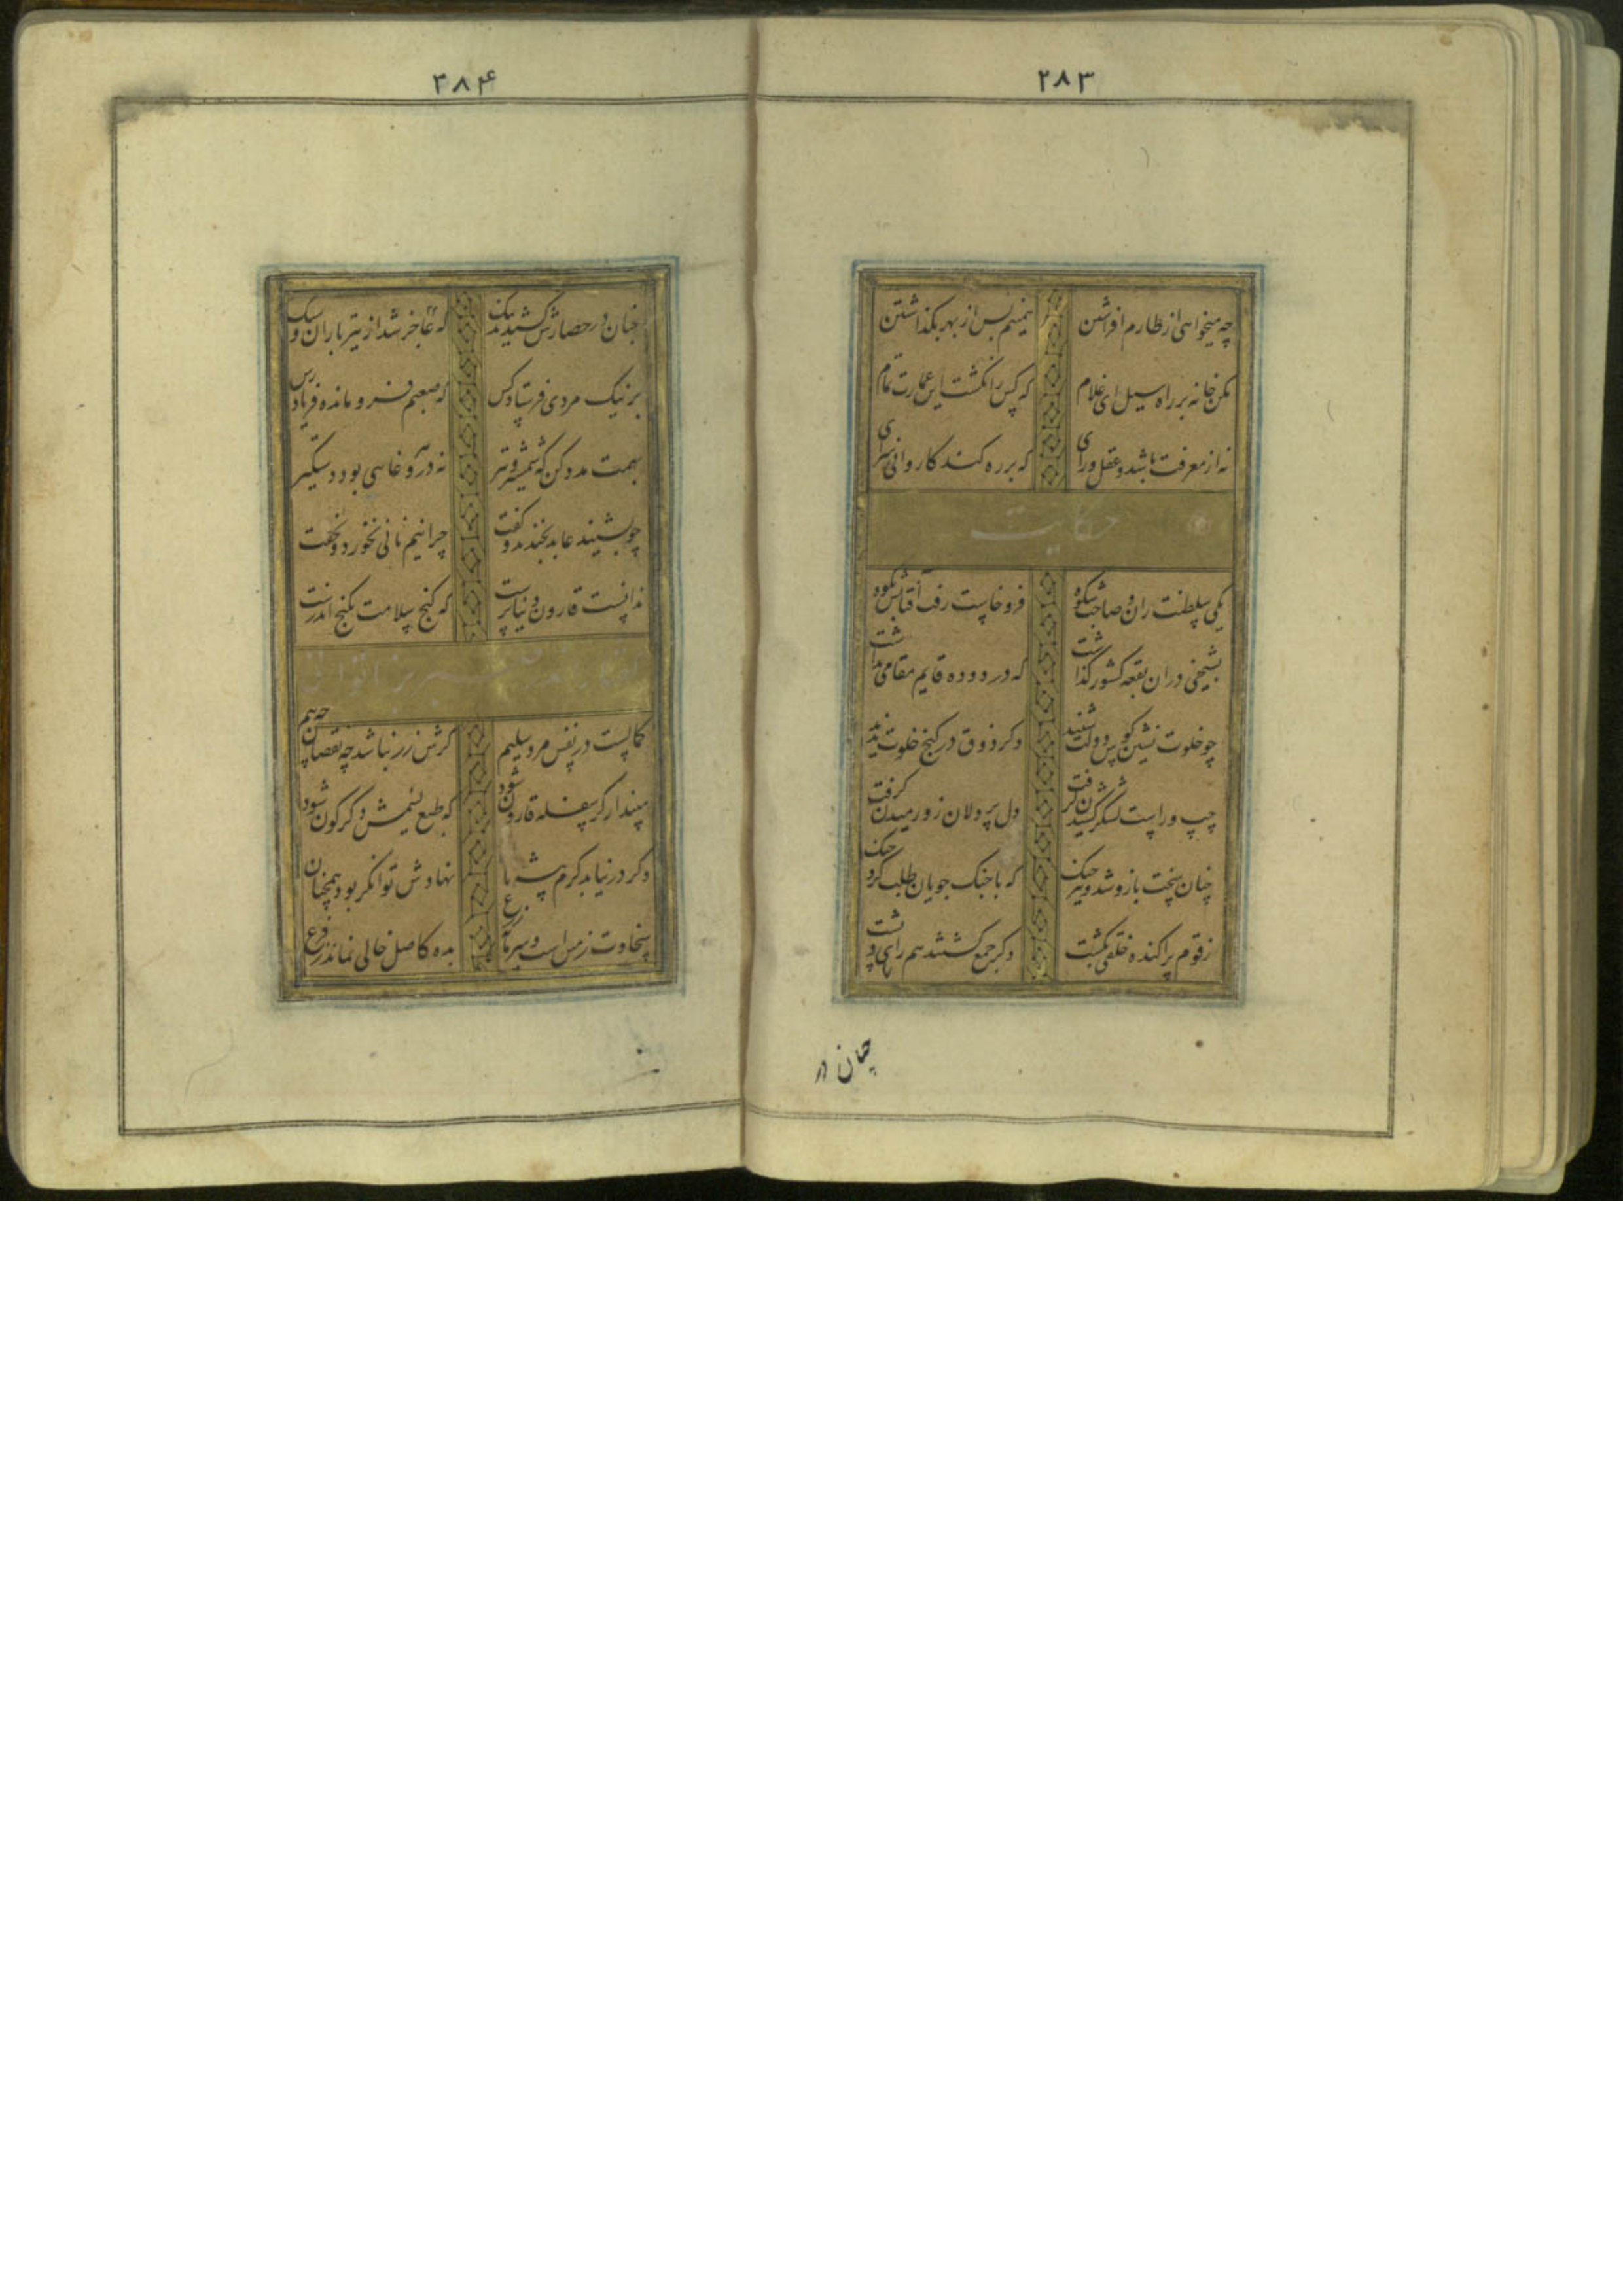 ۲۸۳
چه میخواهی از طارم افراشتن همینم بس از بهر بگذاشتن
مکن خانه بر راه سیل ای غلام که کس را نگشت این عمارت تمام
نه از معرفت باشد و عقل و رای که بر ره کند کاروانی سرای
حکایت
یکی سلطنت ران و صاحب شکوه فرو خاست رفت آفتابش بکوه
بشیخی در ان بقعه کشور گذاشت که در دوده قایم مقامی نداشت
چو خلوت نشین کوس دولت شنید دکر ذوق در کنج خلوت ندید
چپ و راست لشکر کشیدن گرفت دل پر دلان زو رمیدن گرفت
چنان سخت بازو شد و تیز چنک که با جنک جویان طلب کرد جنک
ز قوم پراکنده خلقی بکشت دکر جمع گشتند هم رای و پشت
چنان در
۲۸۴
چنان در حصارش کشیدند تنک که عاجز شد از تیر باران و سنک
بر نیک مردی فرستاد کس که صعبم فرو مانده فریاد رس
بهمت مدد کن که شمشیر و تیر نه در هر وغایی بود دستگیر
چو بشنید عابد بخندید و گفت چرا نیم نانی نخورد و نخفت
ندانست قارون دنیا پرست که گنج سلامت بکنج اندرست
کمالست در نفس مرد سلیم گرش زر نباشد چه نقصان چه بیم
مپندار گر سفله قارون شود که طبع لئیمش دگرگون شود
وگر در نیابد کرم پیشه نان نهادش توانگر بود همچنان
سخاوت زمین است و سرمایه زرع بده کاصل خالی نماند ز فرع